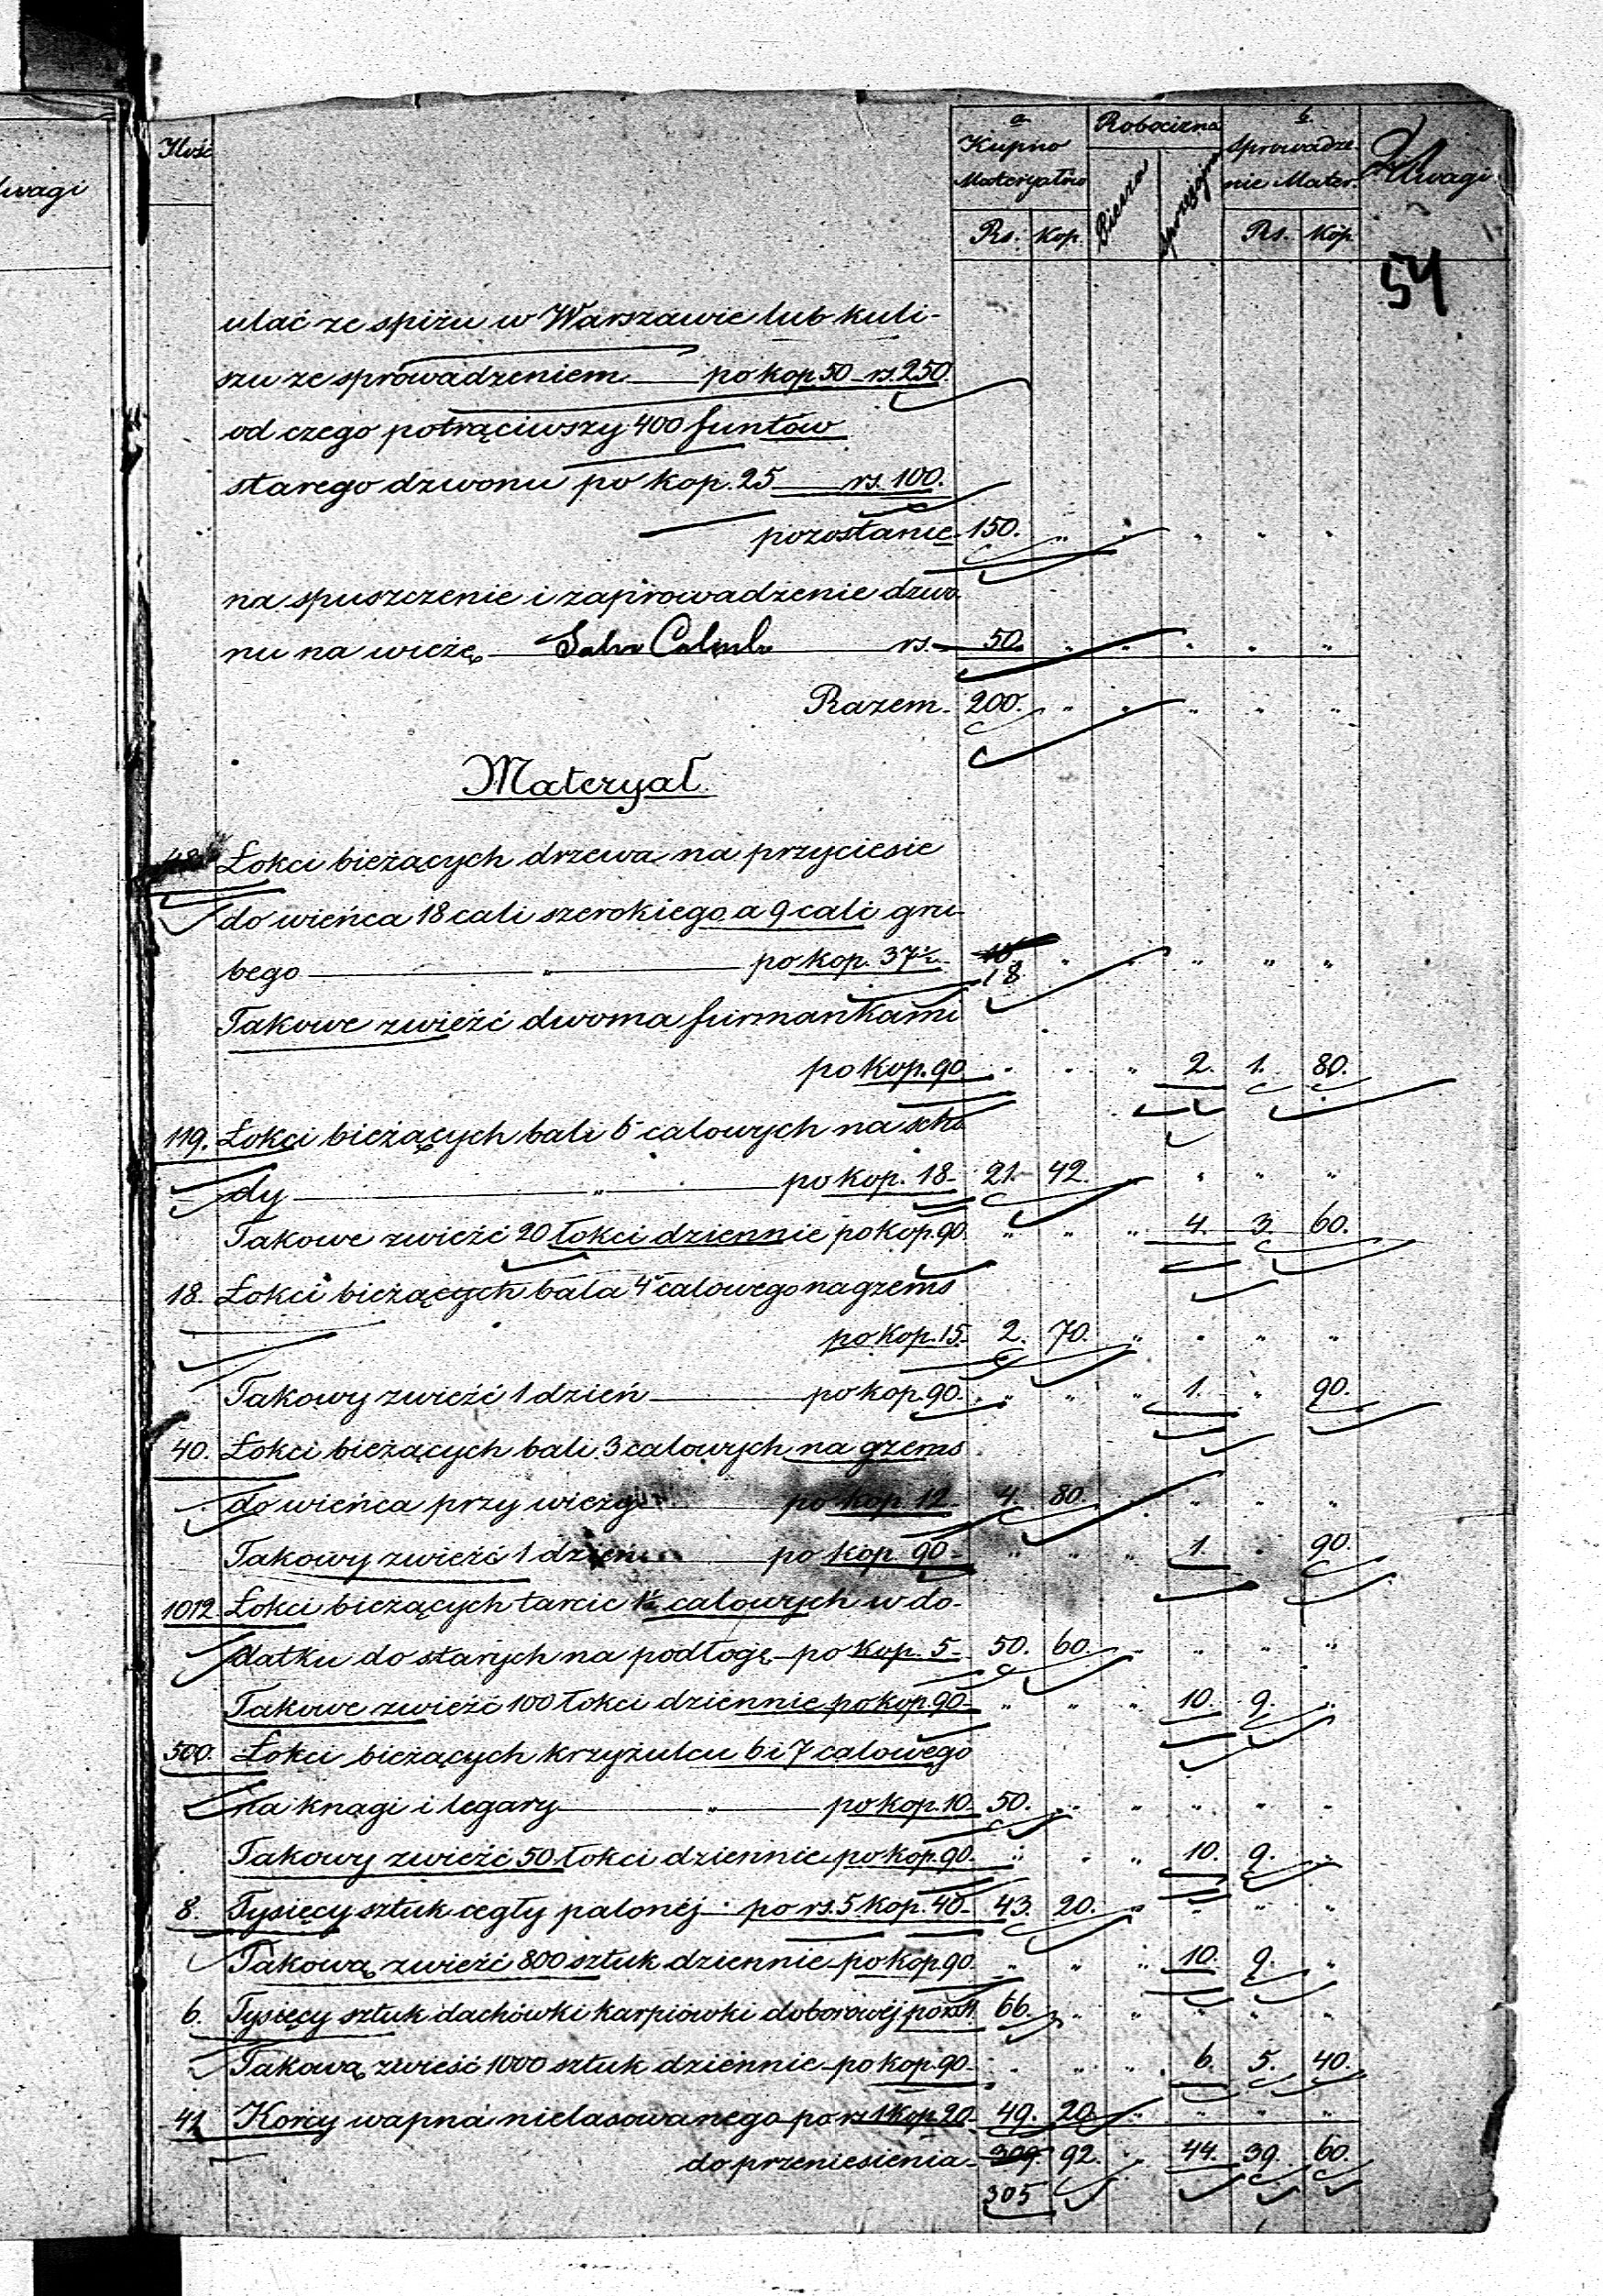 Uwagi
Ilość
a
Kupno
Materyałów
Rs. Kop.
Robocizna
Piesza
sprzężajna
b.
Sprowadze
nie Mater.
Rs. Kop.
Uwagi
54
ulać ze spiżu w Warszawie lub kuli-
szu ze sprowadzeniem po kop. 50 rs. 250.
od czego potrąciwszy 400 funtów
starego dzwonu po kop. 25 rs. 100.
pozostanie 150. " " " " "
na spuszczenie i zaprowadzenie dzwo
nu na wieżę rs. 50. " " " " "
Razem 200. " " " " "
Materyał
48 Łokci bieżących drzewa na przyciesie
do wieńca 18 cali szerokiego a 9 cali gru-
bego " po kop. 37½ 18 " " " " "
Takowe zwieźć dwoma furmankami
po kop. 90 " " " 2. 1. 80.
119. Łokci bieżących bali 5 calowych na scho
dy " po kop. 18 21. 42. " " " "
Takowe zwieźć 20 łokci dziennie po kop. 90 " " " 4. 3. 60.
18. Łokci bieżących bala 4 calowego na gzems
po kop. 15. 2. 70. " " " "
Takowy zwieźć 1 dzień po kop. 90. " " " 1. " 90.
40. Łokci bieżących bali 3 calowych na gzems
do wieńca przy wieży po kop. 12 4. 80. " " " "
Takowy zwieźć 1 dzień po kop. 90 " " " 1. " 90.
1012 Łokci bieżących tarcic 1½ calowych w do-
datku do starych na podłogę po kop. 5 50. 60. " " " "
Takowe zwieźć 100 łokci dziennie po kop. 90 " " " 10. 9. "
500. Łokci bieżących krzyżulcu 6 i 7 calowego
na knagi i legary " po kop. 10 50. " " " " "
Takowy zwieźć 50 łokci dziennie po kop. 90. " " " 10. 9. "
8. Tysięcy sztuk cegły palonéj po rs. 5 kop. 40 43. 20. " " " "
Takową zwieźć 800 sztuk dziennie po kop. 90. " " " 10. 9. "
6. Tysięcy sztuk dachówki karpiówki doborowéj po rs. 11. 66. " " " " "
Takową zwieść 1000 sztuk dziennie po kop. 90 " " " 6. 5. 40.
41 Korcy wapna nielasowanego po rs 1 kop. 20 49. 20. " " " "
do przeniesienia 309. 92. " 44. 39. 60.
305